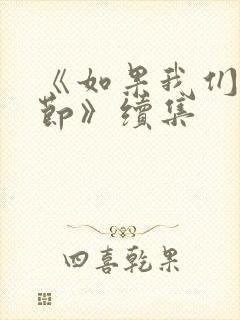 《如果我们
節》續集
四喜乾果